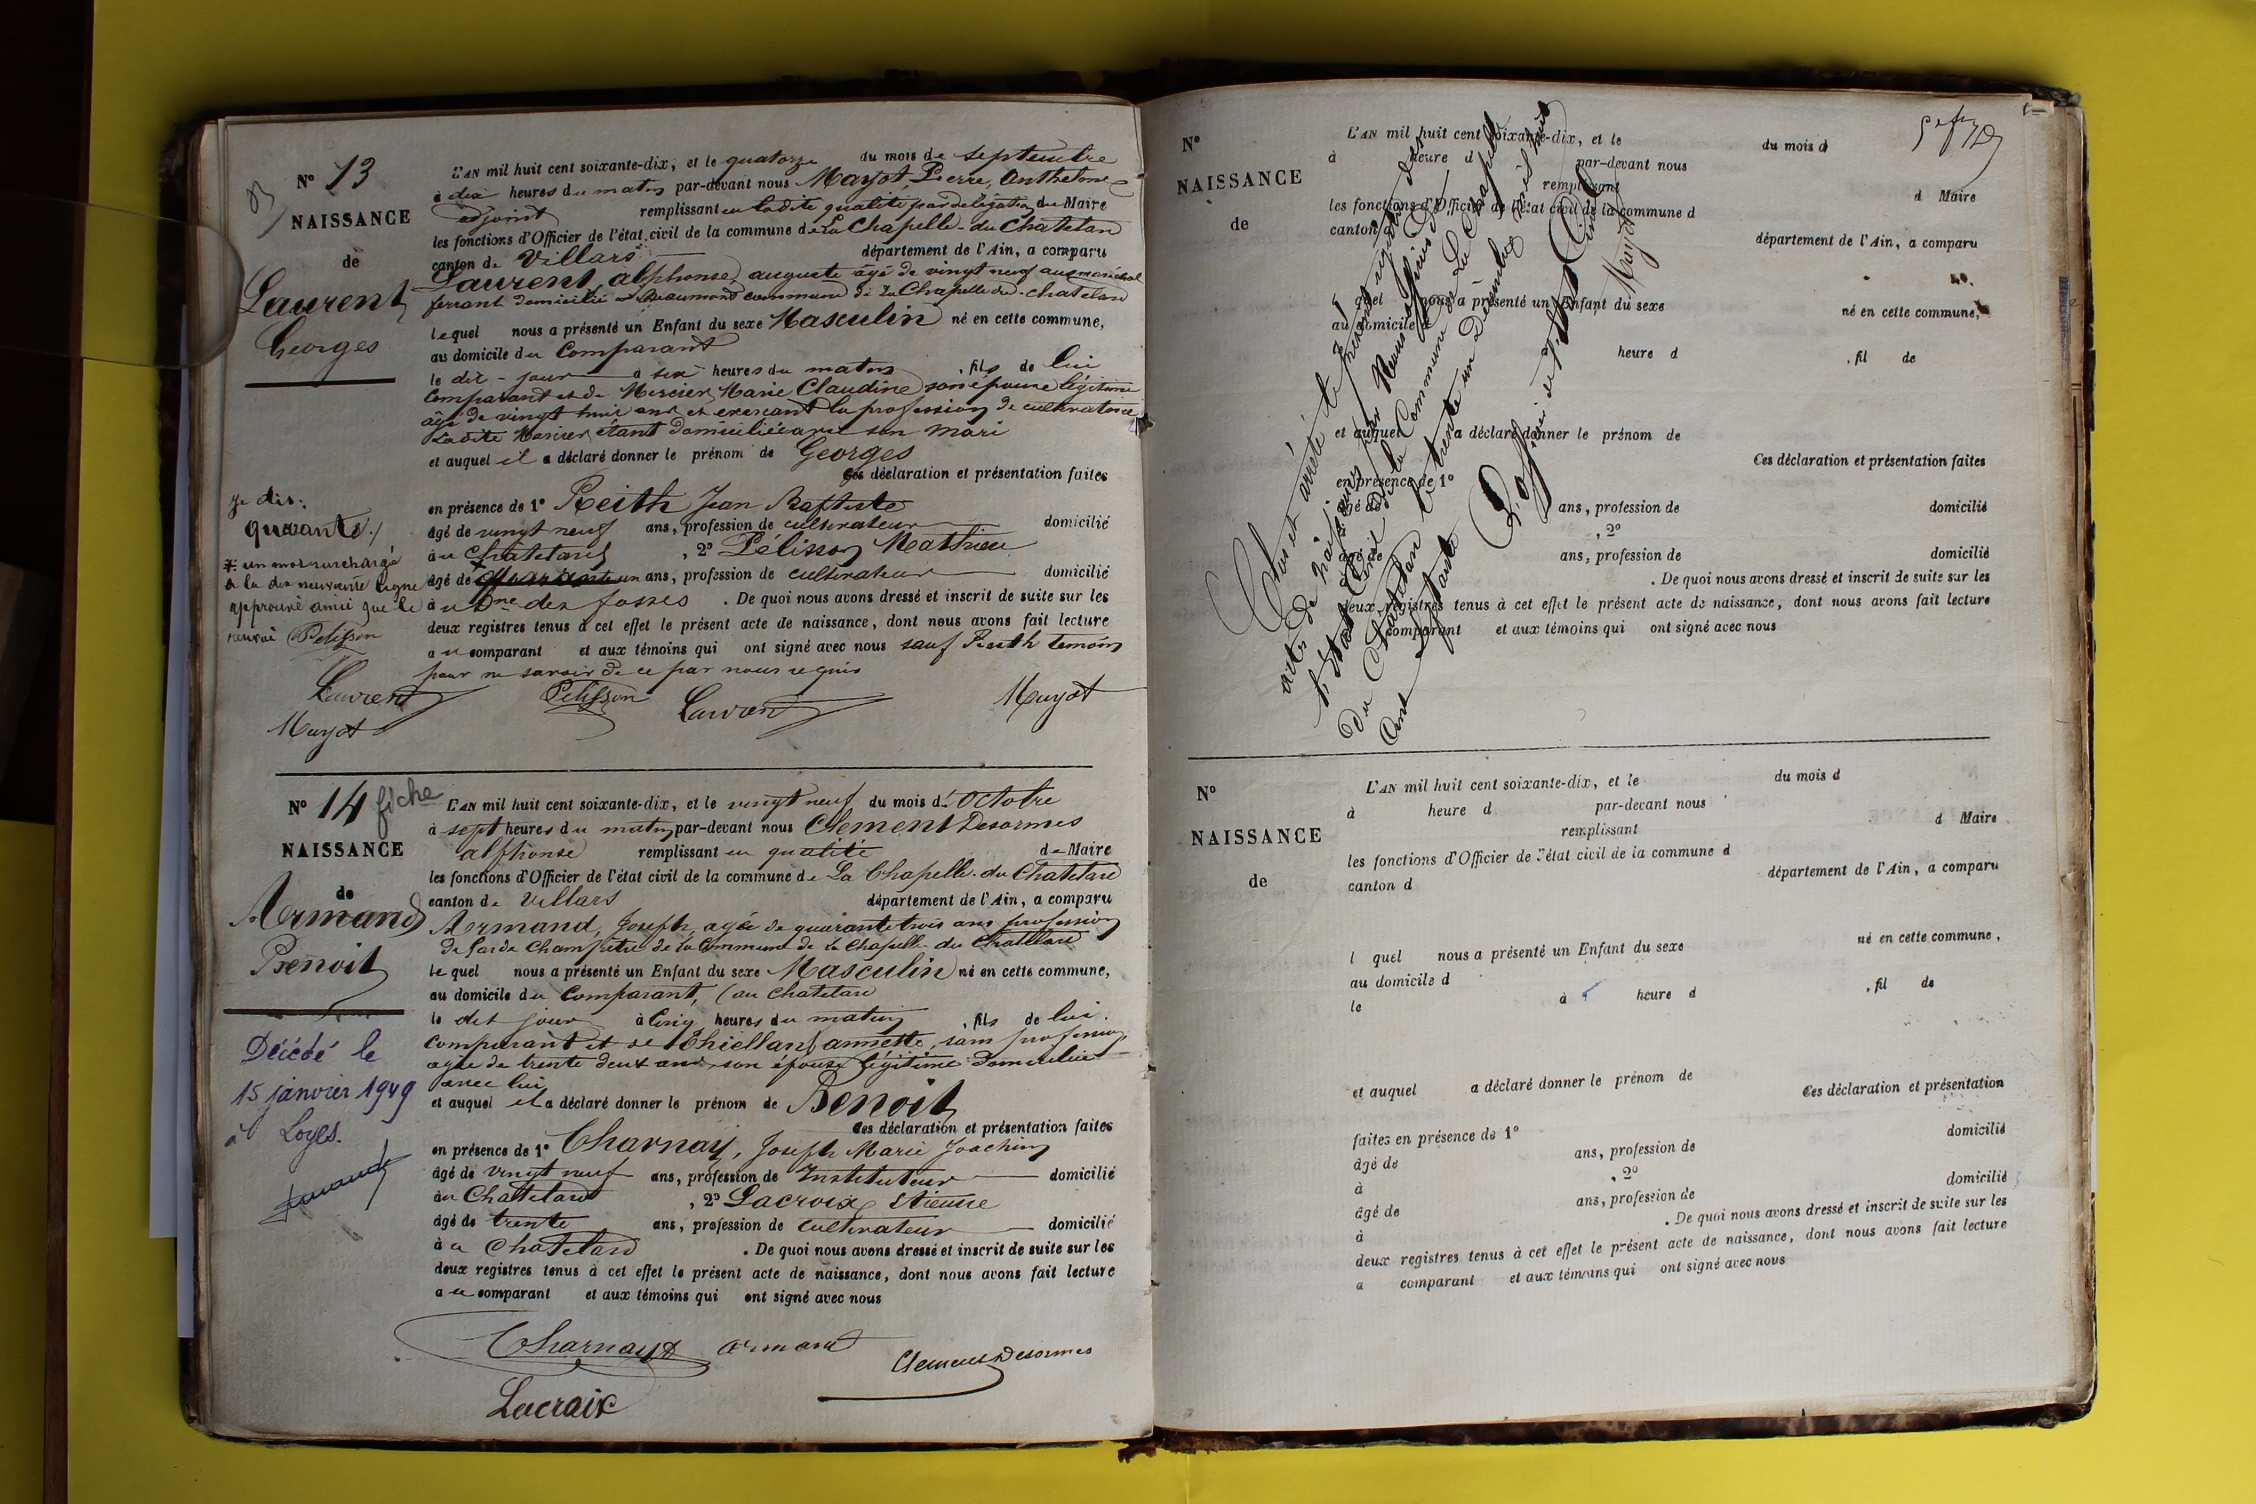 N° 13
NAISSANCE
de
Laurent
Georges
L'AN mil huit cent soixante-dix, et le quatorze du mois de septembre
à dix heures du matin par-devant nous Mayot, Pierre, Anthelme
adjoint remplissant en ladite qualité par délégation du Maire
les fonctions d'Officier de l'état civil de la commune de La Chapelle-du-Chatelard
canton de Villars département de l'Ain, a comparu
Laurent, alphonse, auguste âgé de vingt neuf ans maréchal
ferrant domicilié à Beaumont commune de La Chapelle du-chatelard
lequel nous a présenté un Enfant du sexe Masculin né en cette commune,
au domicile du Comparant
le dit-jour à six heures du matin, fils de lui
Comparant et de Mercier, Marie Claudine son épouse légitime
âgée de vingt huit ans et exerçant la profession de cultivatrice
Ladite Mercier, étant domiciliée avec son mari
et auquel il a déclaré donner le prénom de Georges
Ces déclaration et présentation faites
en présence de 1° Reith Jean Baptiste
âgé de vingt neuf ans, profession de cultivateur domicilié
au Chatelard, 2° Pélisson Mathieu
âgé de quarante un ans, profession de cultivateur domicilié
à u Dne des fosses. De quoi nous avons dressé et inscrit de suite sur les
deux registres tenus à cet effet le présent acte de naissance, dont nous avons fait lecture
au comparant et aux témoins qui ont signé avec nous sauf Reith temoin
pour ne savoir de ce par nous requis
je dis:
quarante /
* un mot surchargé
à la dix neuvième ligne
approuvé ainsi que le
renvoi Pelisson
Laurent Pelisson Laurent Mayot
Mayot
N° 14 fiche
NAISSANCE
de
Armand
Benoit
L'AN mil huit cent soixante-dix, et le vingt neuf du mois d'Octobre
à sept heures du matin par-devant nous Clement Desormes
alphonse remplissant en qualité de Maire
les fonctions d'Officier de l'état civil de la commune de La Chapelle-du Chatelard
canton de Villars département de l'Ain, a comparu
Armand, Joseph, agée de quarante trois ans profession
de Garde Champetre de la Commune de La Chapelle-du Chatelard
lequel nous a présenté un Enfant du sexe Masculin né en cette commune,
au domicile du Comparant, (au Chatelard
le dit jour à Cinq heures du matin, fils de lui.
Comparant et de Thielland annette, sans profession
agée de trente deux ans, son épouse légitime domiciliée
avec lui
et auquel il a déclaré donner le prénom de Benoit
Ces déclaration et présentation faites
en présence de 1° Charnay, Joseph Marie Joachim
âgé de vingt neuf ans, profession de Instituteur domicilié
au Chatelard, 2° Lacroix Etienne
âgé de trente ans, profession de cultivateur domicilié
à u Chatelard. De quoi nous avons dressé et inscrit de suite sur les
deux registres tenus à cet effet le présent acte de naissance, dont nous avons fait lecture
au comparant et aux témoins qui ont signé avec nous
Décédé le
15 janvier 1949
à Loyes.
Charnay armand Clement Desormes
Lacroix
N°
NAISSANCE
de
L'AN mil huit cent soixante-dix, et le du mois d
à heure d par-devant nous
remplissant d Maire
les fonctions d'Officier de l'état civil de la commune d
canton d département de l'Ain, a comparu
l quel nous a présenté un Enfant du sexe né en cette commune,
au domicile d
heure d, fil de
et auquel a déclaré donner le prénom de
Ces déclaration et présentation faites
en présence de 1°
âgé de ans, profession de domicilié
, 2°
âgé de ans, profession de domicilié
. De quoi nous avons dressé et inscrit de suite sur les
deux registres tenus à cet effet le présent acte de naissance, dont nous avons fait lecture
comparant et aux témoins qui ont signé avec nous
Clos et arrêté le présent registre des
actes de naissances par Nous officier de
l'Etat Civil de la Commune de La Chapelle
du Chatelard le trente un Décembre mil huit
Cent Septante
L'officier de l'Etat Civil
Mayot
N°
NAISSANCE
de
L'AN mil huit cent soixante-dix, et le du mois d
à heure d par-devant nous
remplissant d Maire
les fonctions d'Officier de l'état civil de la commune d
canton d département de l'Ain, a comparu
l quel nous a présenté un Enfant du sexe né en cette commune,
au domicile d
le à heure d, fil de
et auquel a déclaré donner le prénom de
Ces déclaration et présentation
faites en présence de 1°
âgé de ans, profession de domicilié
à , 2°
âgé de ans, profession de domicilié
à . De quoi nous avons dressé et inscrit de suite sur les
deux registres tenus à cet effet le présent acte de naissance, dont nous avons fait lecture
a comparant et aux témoins qui ont signé avec nous